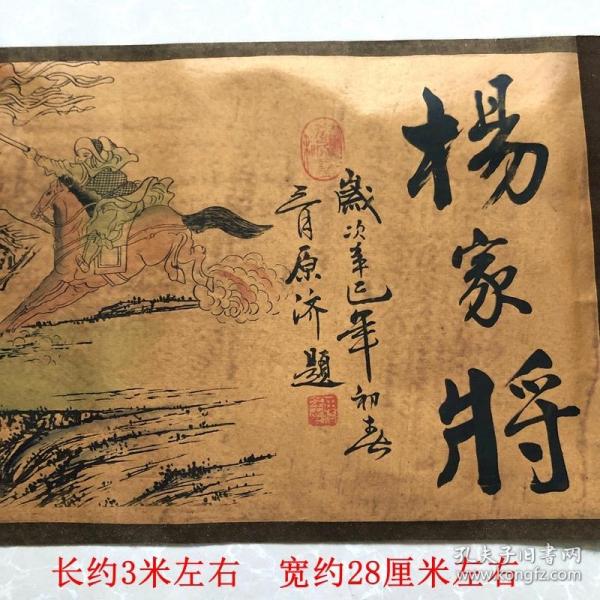 楊家將
歲次辛巳年初春
三月原济題
长约3米左右 宽约28厘米左右
孔夫子旧书网
www.kongfz.com